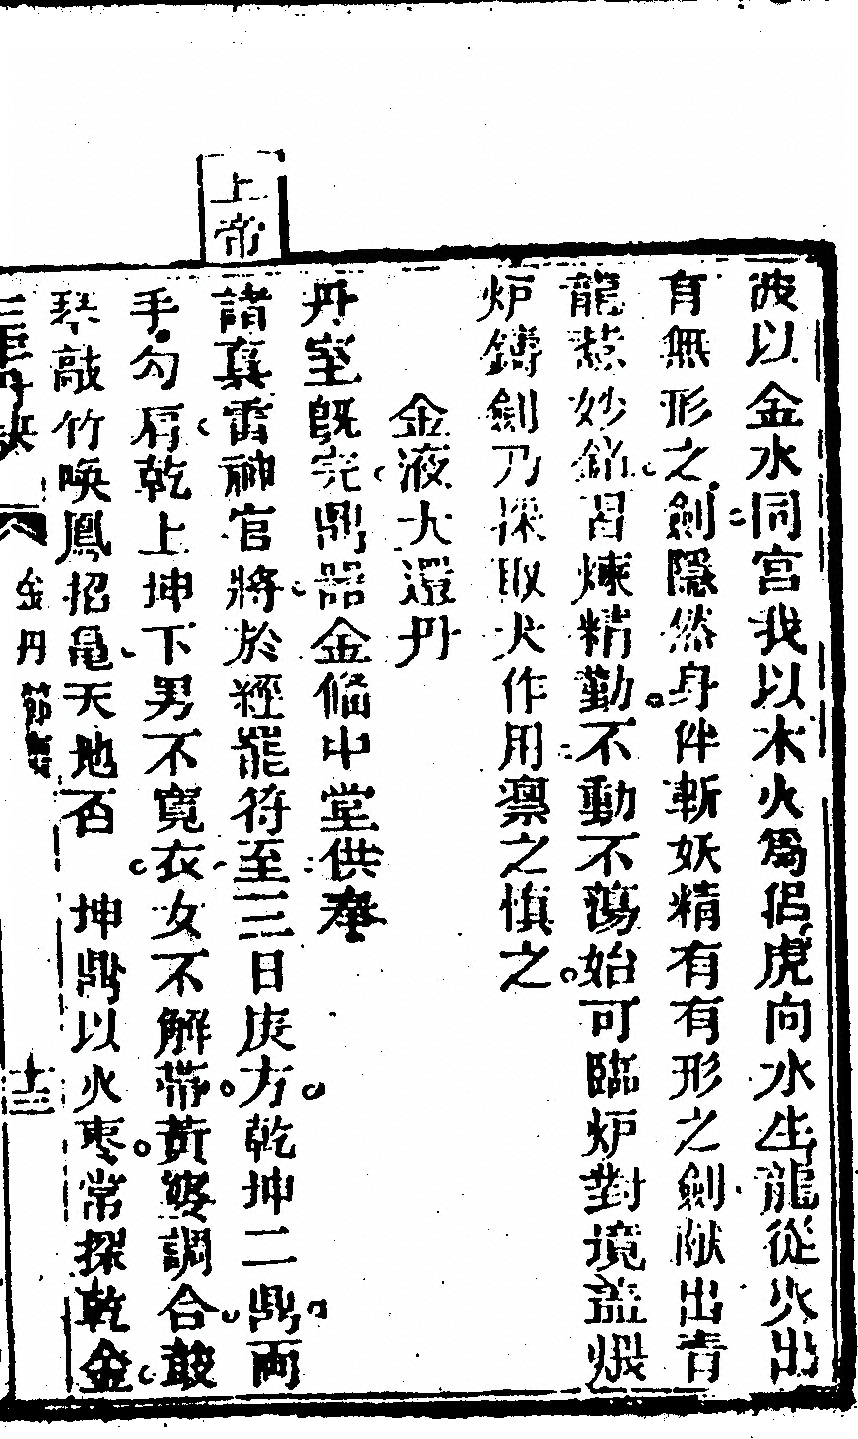 彼以金水同宮我以木火爲侶虎向水生龍從火出
有無形之劍隱然身伴斬妖精有有形之劍獻出青
龍惹妙銘習煉精勤不動不蕩始可臨炉對境盖煆
炉鑄劍乃採取大作用禀之慎之
金液大還丹
上帝
丹室既完鼎器金偹中堂供奉
諸真雷神官將於經罷符至三日庚方乾坤二鼎両
手勾肩乾上坤下男不寬衣女不解帶黃婆調合敲
琴敲竹喚鳳招亀天地否 坤鼎以火棗常探乾金
金丹節要
十三